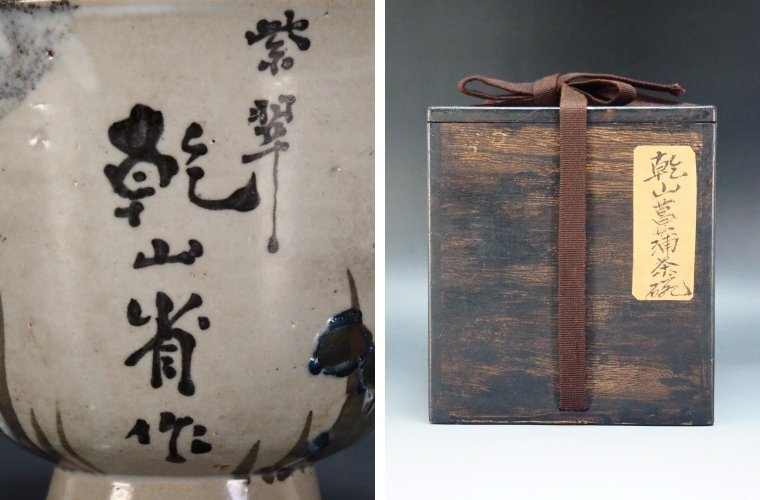 紫翠
乾山省作
乾山菖蒲茶碗